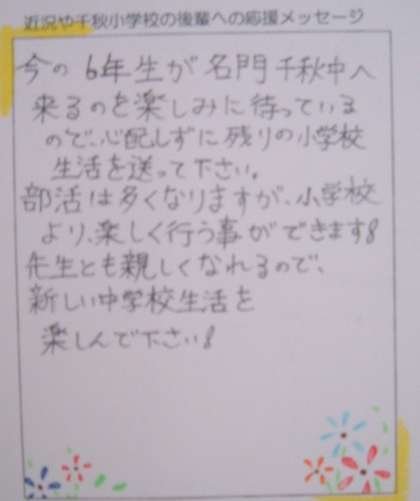 近況や千秋小学校の後輩への応援メッセージ
今の6年生が名門千秋中へ
来るのを楽しみに待っている
ので、心配しずに残りの小学校
生活を送って下さい。
部活は多くなりますが、小学校
より、楽しく行う事ができます!
先生とも親しくなれるので、
新しい中学校生活を
楽しんで下さい!